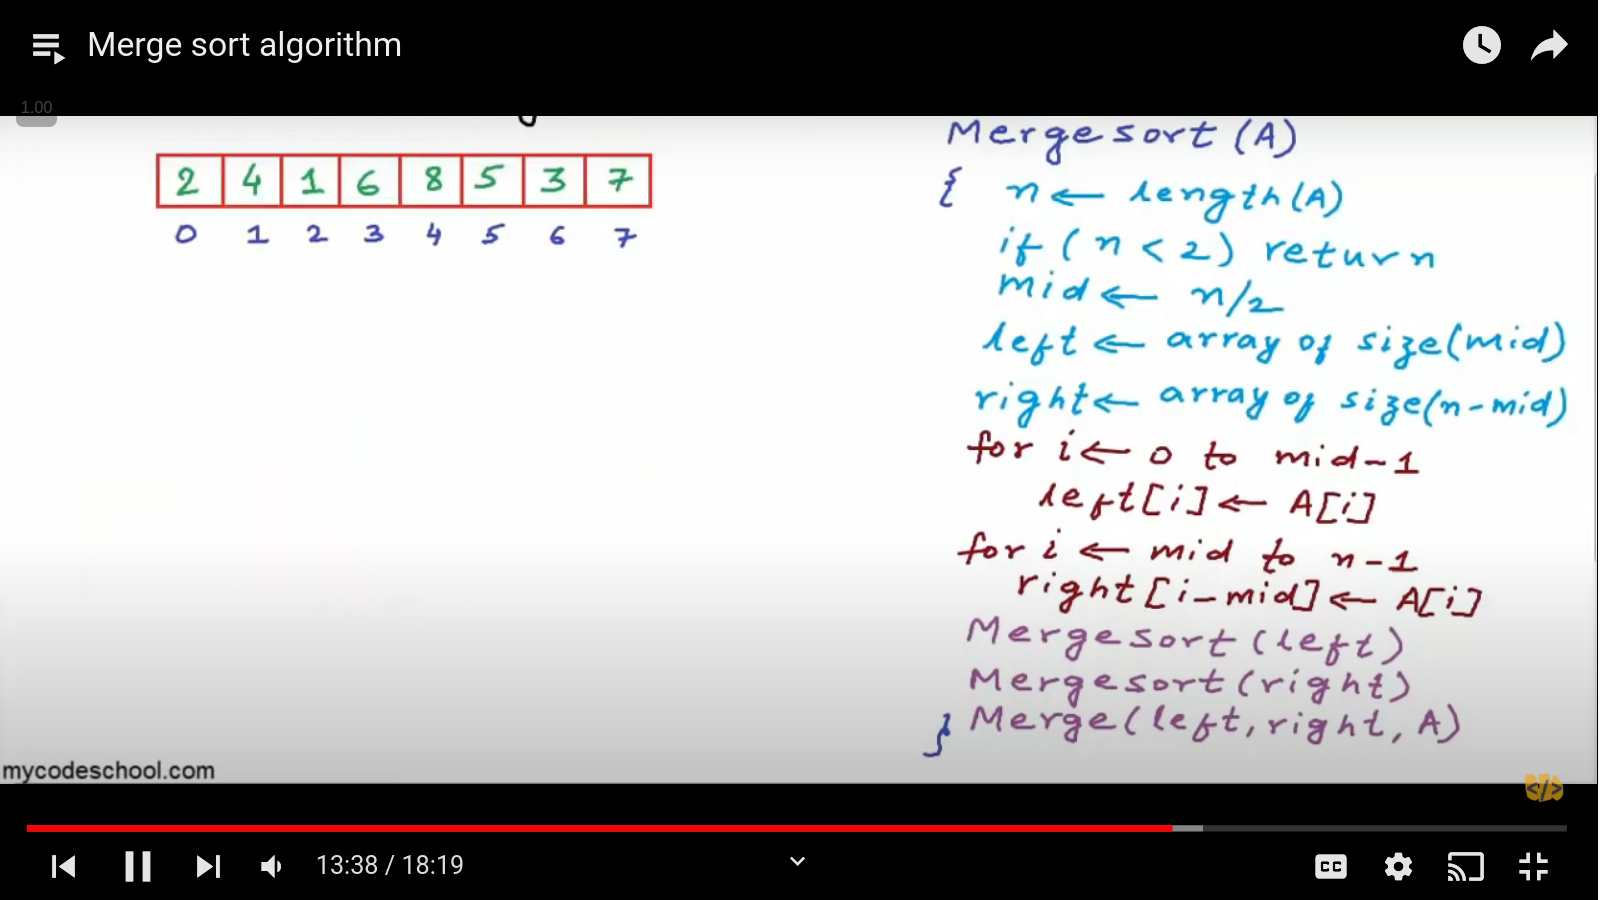 Merge sort algorithm
1.00
2 4 1 6 8 5 3 7
0 1 2 3 4 5 6 7
Mergesort(A)
{ n ← length(A)
if (n < 2) return
mid ← n/2
left ← array of size(mid)
right ← array of size(n-mid)
for i ← 0 to mid-1
left[i] ← A[i]
for i ← mid to n-1
right[i-mid] ← A[i]
Mergesort(left)
Mergesort(right)
} Merge(left, right, A)
mycodeschool.com
</>
13:38 / 18:19
CC